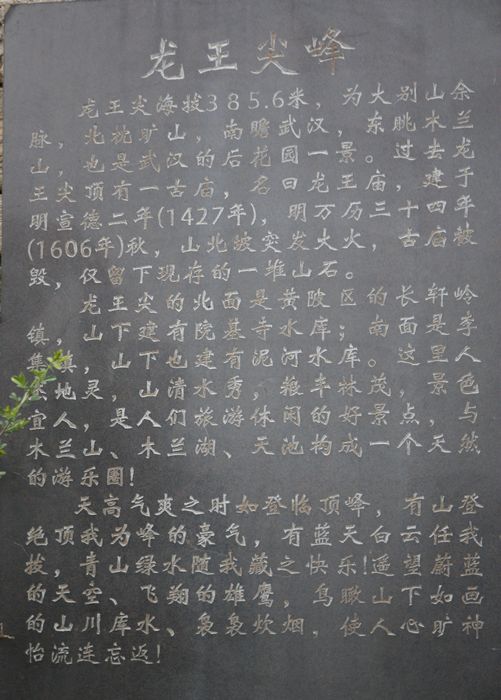 龙王尖峰
龙王尖海拔385.6米，为大别山余
脉，北枕旷山，南瞻武汉，东眺木兰
山，也是武汉的后花园一景。过去龙
王尖顶有一古庙，名曰龙王庙，建于
明宣德二年(1427年)，明万历三十四年
(1606年)秋，山北坡突发大火，古庙被
毁，仅留下现存的一堆山石。
龙王尖的北面是黄陂区的长轩岭
镇，山下建有院基寺水库；南面是李
集镇，山下也建有泥河水库。这里人
杰地灵，山清水秀，粮丰林茂，景色
宜人，是人们旅游休闲的好景点，与
木兰山、木兰湖、天池构成一个天然
的游乐圈！
天高气爽之时如登临顶峰，有山登
绝顶我为峰的豪气，有蓝天白云任我
拔，青山绿水随我藏之快乐！遥望蔚蓝
的天空、飞翔的雄鹰，鸟瞰山下如画
的山川库水、袅袅炊烟，使人心旷神
怡流连忘返！